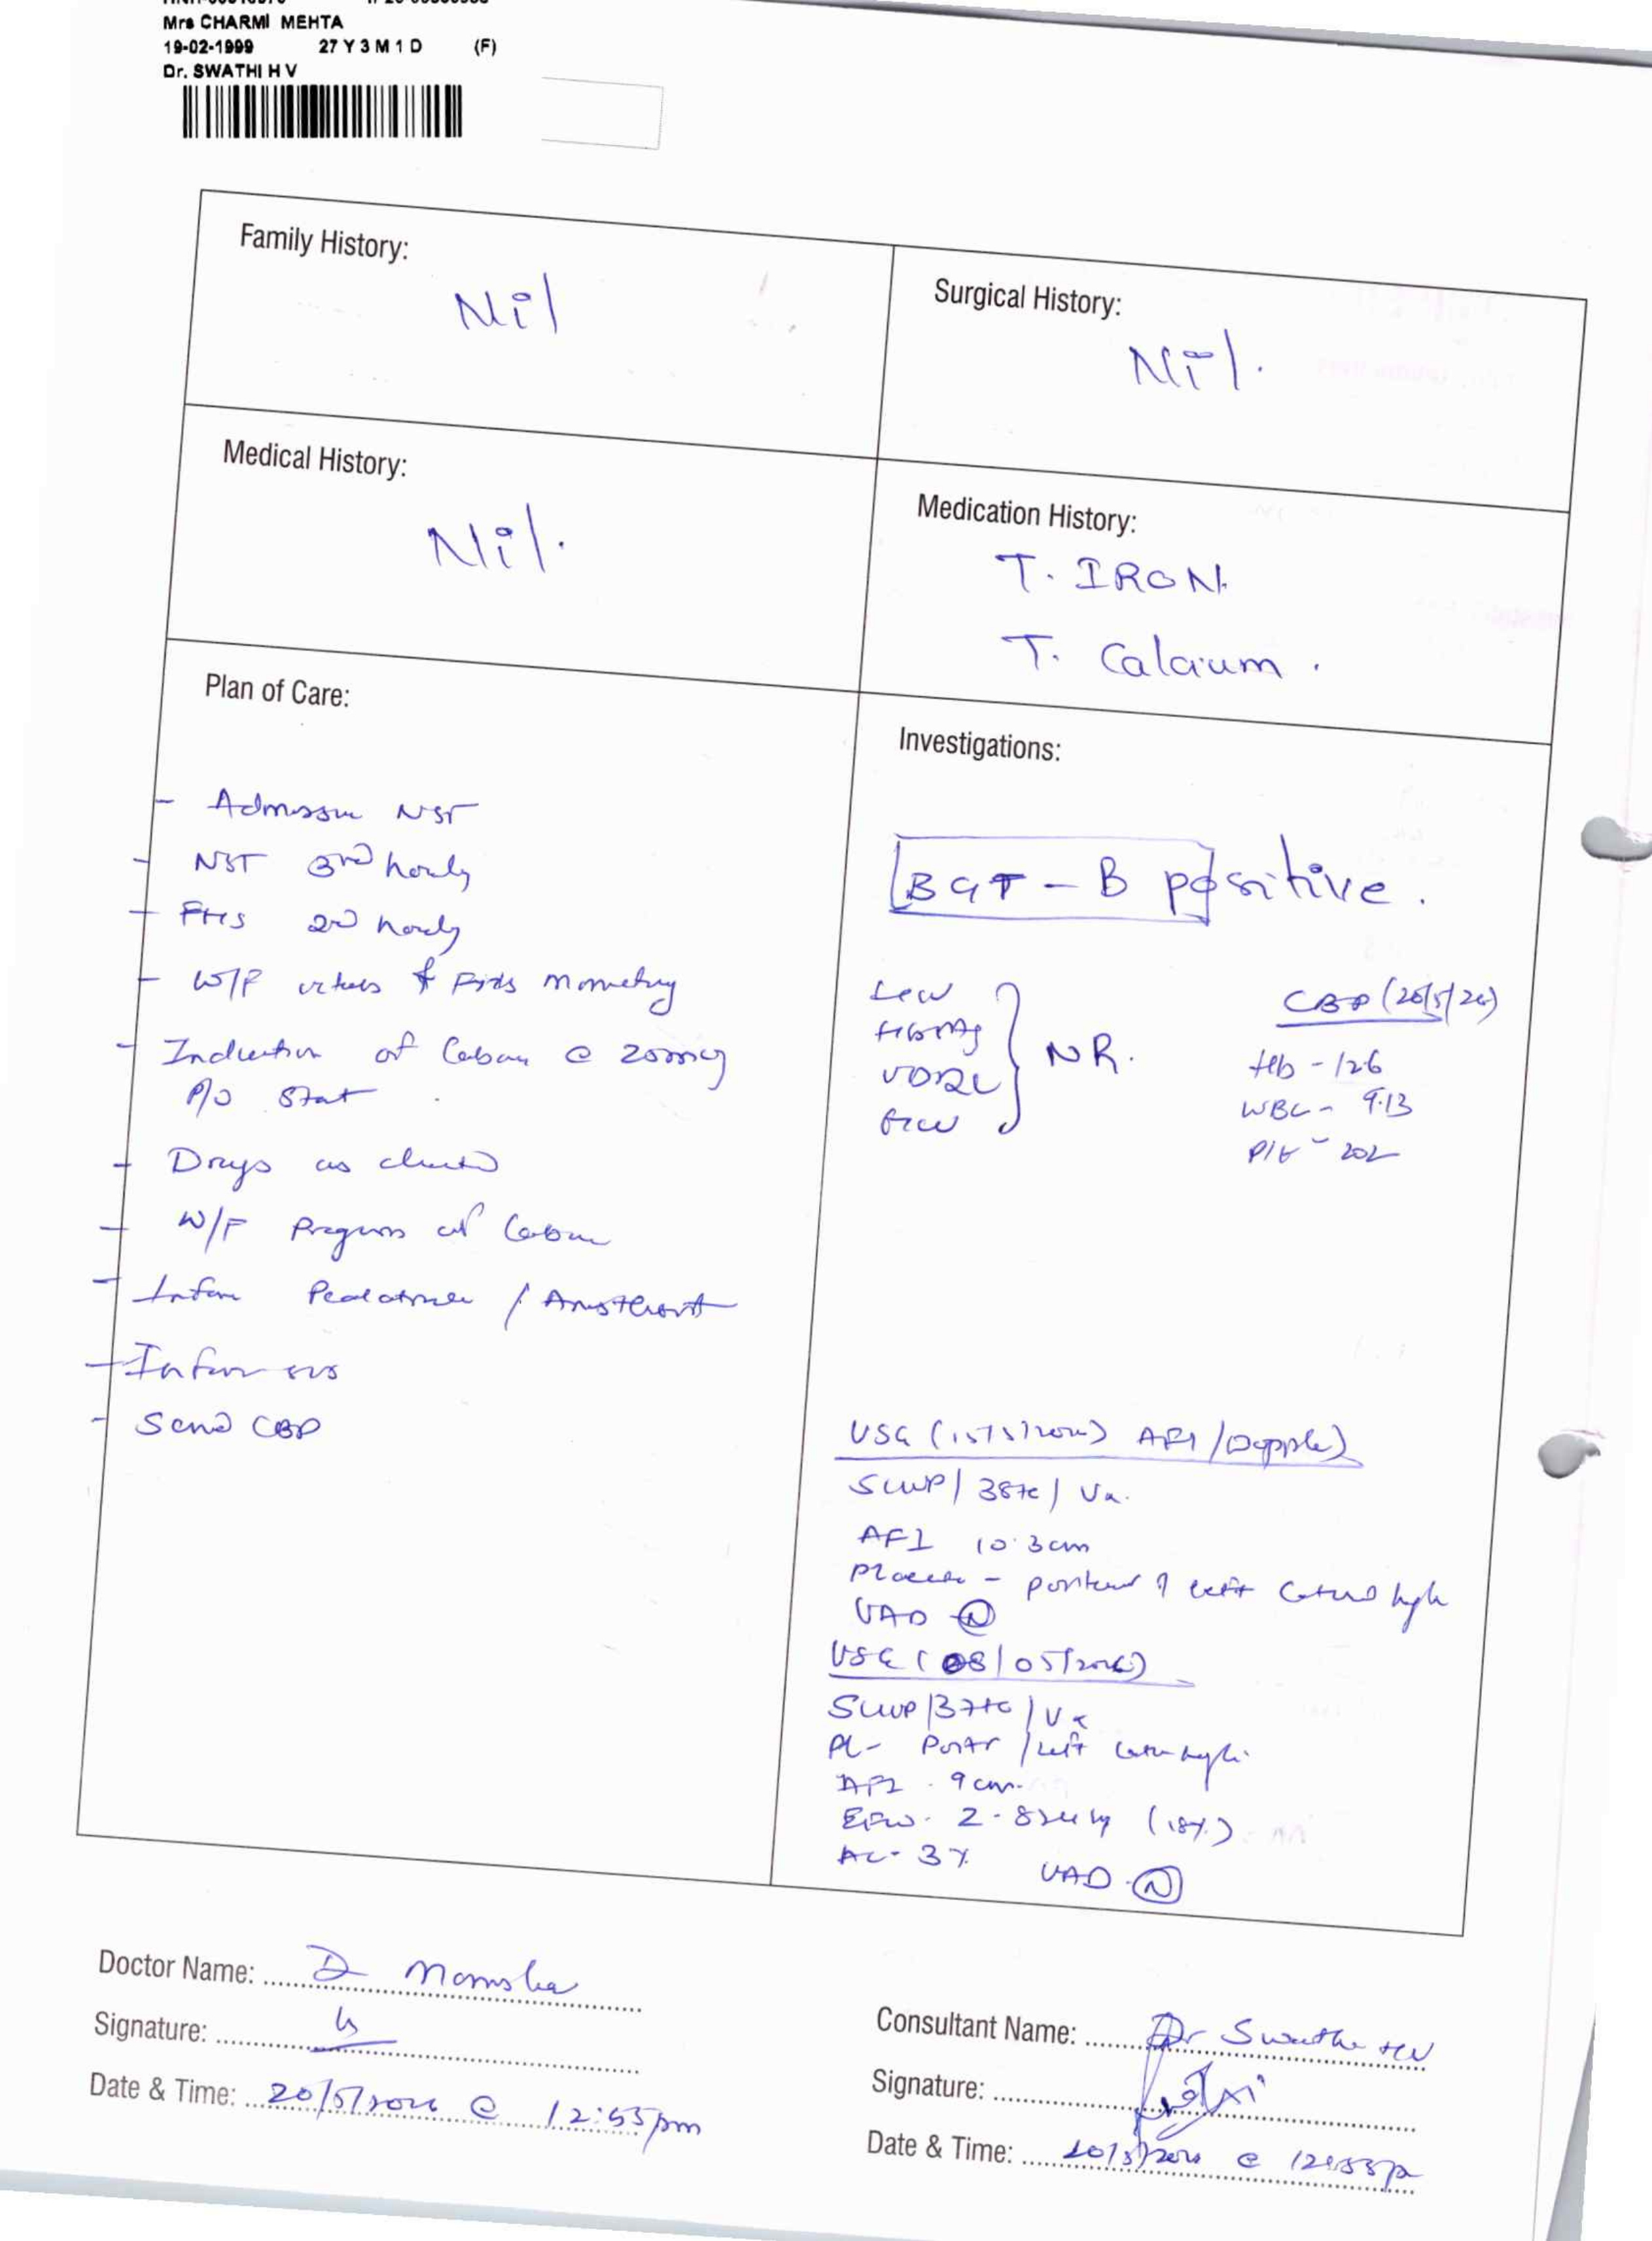 Mrs CHARMI MEHTA
19-02-1999 27 Y 3 M 1 D (F)
Dr. SWATHI H V
Family History:
Nil
Surgical History:
Nil.
Medical History:
Nil.
Medication History:
T. IRON.
T. Calcium.
Plan of Care:
- Admission NST
- NST 3rd hourly
- FHS 2nd hourly
- W/F vitals & monitoring
- Induction of labour @ 25mcg
P/O Stat.
- Drugs as charted
- W/F Progress of labour
- Inform Pediatrician / Anesthesist
- Inform
- Send CBP
Investigations:
BGT - B positive.
VDRL
NR.
CBP (20/5/26)
Hb - 12.6
WBC - 9.13
Plt - 202
USG (15/5/2026) AFI/Doppler)
SLIUP/ 38+ / Vx.
AFI 10.3cm
Placenta - Posterior left lateral high
UAD (N)
USG (08/05/2026)
SLIUP/37+ / Vx
PL- Postr /left lateral high.
AFI - 9cm.
EFW - 2.824kg (18%)
AC - 3% UAD - (N)
Doctor Name:
Signature:
Date & Time: 20/5/2026 @ 12:55pm
Consultant Name: Dr Swathi HV
Signature:
Date & Time: 20/5/2026 @ 12:55p